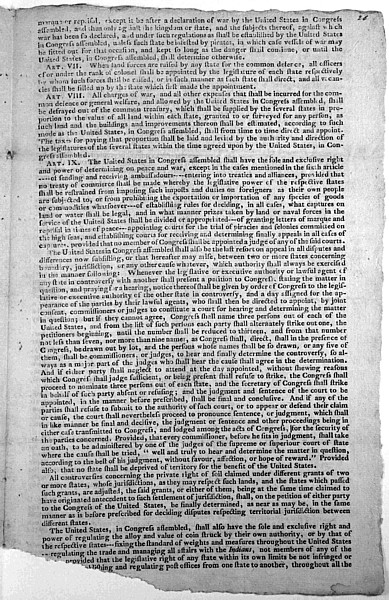 of marque or reprisal, except it be after a declaration of war by the United States in Congress
assembled, and then only against the kingdom or state, and the subjects thereof, against which
war has been so declared, and under such regulations as shall be established by the United States
in Congress assembled, unless such state be infested by pirates, in which case vessels of war may
be fitted out for that occasion, and kept so long as the danger shall continue, or until the
United States, in Congress assembled, shall determine otherwise.
ART. VII. When land forces are raised by any state for the common defence, all officers
of or under the rank of colonel shall be appointed by the legislature of each state respectively
by whom such forces shall be raised, or in such manner as such state shall direct, and all vacan-
cies shall be filled up by the state which first made the appointment.
ART VIII. All charges of war, and all other expences that shall be incurred for the com-
mon defence or general welfare, and allowed by the United States in Congress assembled, shall
be defrayed out of the common treasury, which shall be supplied by the several states in pro-
portion to the value of all land within each state, granted to or surveyed for any person, as
such land and the buildings and improvements thereon shall be estimated, according to such
mode as the United States, in Congress assembled, shall from time to time direct and appoint.
The taxes for paying that proportion shall be laid and levied by the authority and direction of
the legislatures of the several states within the time agreed upon by the United States, in Con-
gress assembled.
ART. IX. The United States in Congress assembled shall have the sole and exclusive right
and power of determining on peace and war, except in the cases mentioned in the sixth article
—of sending and receiving ambassadours—entering into treaties and alliances, provided that
no treaty of commerce shall be made whereby the legislative power of the respective states
shall be restrained from imposing such imposts and duties on foreigners as their own people
are subjected to, or from prohibiting the exportation or importation of any species of goods
or commodities whatsoever—of establishing rules for deciding, in all cases, what captures on
land or water shall be legal, and in what manner prizes taken by land or naval forces in the
service of the United States shall be divided or appropriated—of granting letters of marque and
reprisal in times of peace—appointing courts for the trial of piracies and felonies committed on
the high seas, and establishing courts for receiving and determining finally appeals in all cases of
captures, provided that no member of Congress shall be appointed a judge of any of the said courts.
The United States in Congress assembled shall also be the last resort on appeal in all disputes and
differences now subsisting, or that hereafter may arise, between two or more states concerning
boundary, jurisdiction, or any other cause whatever, which authority shall always be exercised
in the manner following: Whenever the legislative or executive authority or lawful agent of
any state in controversy with another shall present a petition to Congress, stating the matter in
question, and praying for a hearing, notice thereof shall be given by order of Congress to the legisla-
tive or executive authority of the other state in controversy, and a day assigned for the ap-
pearance of the parties by their lawful agents, who shall then be directed to appoint, by joint
consent, commissioners or judges to constitute a court for hearing and determining the matter
in question; but if they cannot agree, Congress shall name three persons out of each of the
United States, and from the list of such persons each party shall alternately strike out one, the
petitioners beginning, until the number shall be reduced to thirteen, and from that number
not less than seven, nor more than nine names, as Congress shall, direct, shall in the presence of
Congress, be drawn out by lot, and the persons whose names shall be so drawn, or any five of
them, shall be commissioners, or judges, to hear and finally determine the controversy, so al-
ways as a major part of the judges who shall hear the cause shall agree in the determination.
And if either party shall neglect to attend at the day appointed, without shewing reasons
which Congress shall judge sufficient, or being present shall refuse to strike, the Congress shall
proceed to nominate three persons out of each state, and the secretary of Congress shall strike
in behalf of such party absent or refusing; and the judgment and sentence of the court to be
appointed, in the manner before prescribed, shall be final and conclusive. And if any of the
parties shall refuse to submit to the authority of such court, or to appear or defend their claim
or cause, the court shall nevertheless proceed to pronounce sentence, or judgment, which shall
in like manner be final and decisive, the judgment or sentence and other proceedings being in
either case transmitted to Congress, and lodged among the acts of Congress, for the security of
the parties concerned. Provided, that every commissioner, before he sits in judgment, shall take
an oath, to be administered by one of the judges of the supreme or superiour court of state
where the cause shall be tried, "well and truly to hear and determine the matter in question,
according to the best of his judgment, without favour, affection, or hope of reward." Provided
also, that no state shall be deprived of territory for the benefit of the United States.
All controversies concerning the private right of soil claimed under different grants of two
or more states, whose jurisdictions, as they may respect such lands, and the states which passed
such grants, are adjusted, the said grants, or either of them, being at the same time claimed to
have originated antecedent to such settlement of jurisdiction, shall, on the petition of either party
to the Congress of the United States, be finally determined, as near as may be, in the same
manner as is before prescribed for deciding disputes respecting territorial jurisdiction between
different states.
The United States, in Congress assembled, shall also have the sole and exclusive right and
power of regulating the alloy and value of coin struck by their own authority, or by that of
the respective states—fixing the standard of weights and measures throughout the United States
—regulating the trade and managing all affairs with the Indians, not members of any of the
provided that the legislative right of any state within its own limits be not infringed or
establishing and regulating post offices from one state to another, throughout all the